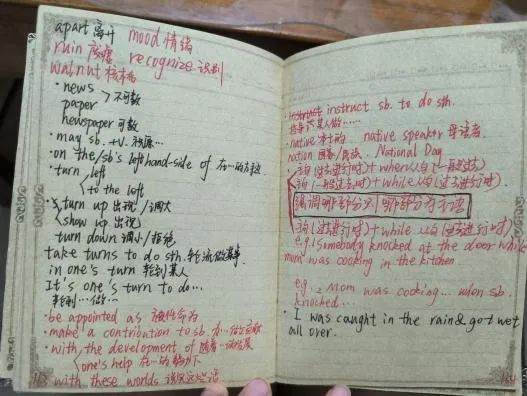 apart 离开 mood 情绪
ruin 废墟 recognize 识别
walnut 核桃
·news
paper > 不可数
newspaper 可数
·may sb. +V. 祝愿…
·on the/sb's left hand-side of 在…的左边
·turn left
to the left
·turn up 出现/调大
show up 出现
turn down 调小/拒绝
take turns to do sth. 轮流做某事
in one's turn 轮到某人
It's one's turn to do...
轮到…做…
·be appointed as 被任命为
·make a contribution to sb. 为…做出贡献
·with the development of 随着…的发展
one's help 在…的帮助下
with these words 说完这些话
instruct sb. to do sth.
指导某人做……
·native 本土的 native speaker 母语者
nation 国家/民族. National Day
·主句(过去进行时)+when从句(一般过去)
主句(一般过去时)+while从句(过去进行时)
强调哪部分则哪部分为主语
主句(过去进行时)+while 从句(过去进行时)
e.g.1 Somebody knocked at the door while
mom was cooking in the kitchen.
e.g.2 Mom was cooking... when sb.
knocked...
·I was caught in the rain & got wet
all over.